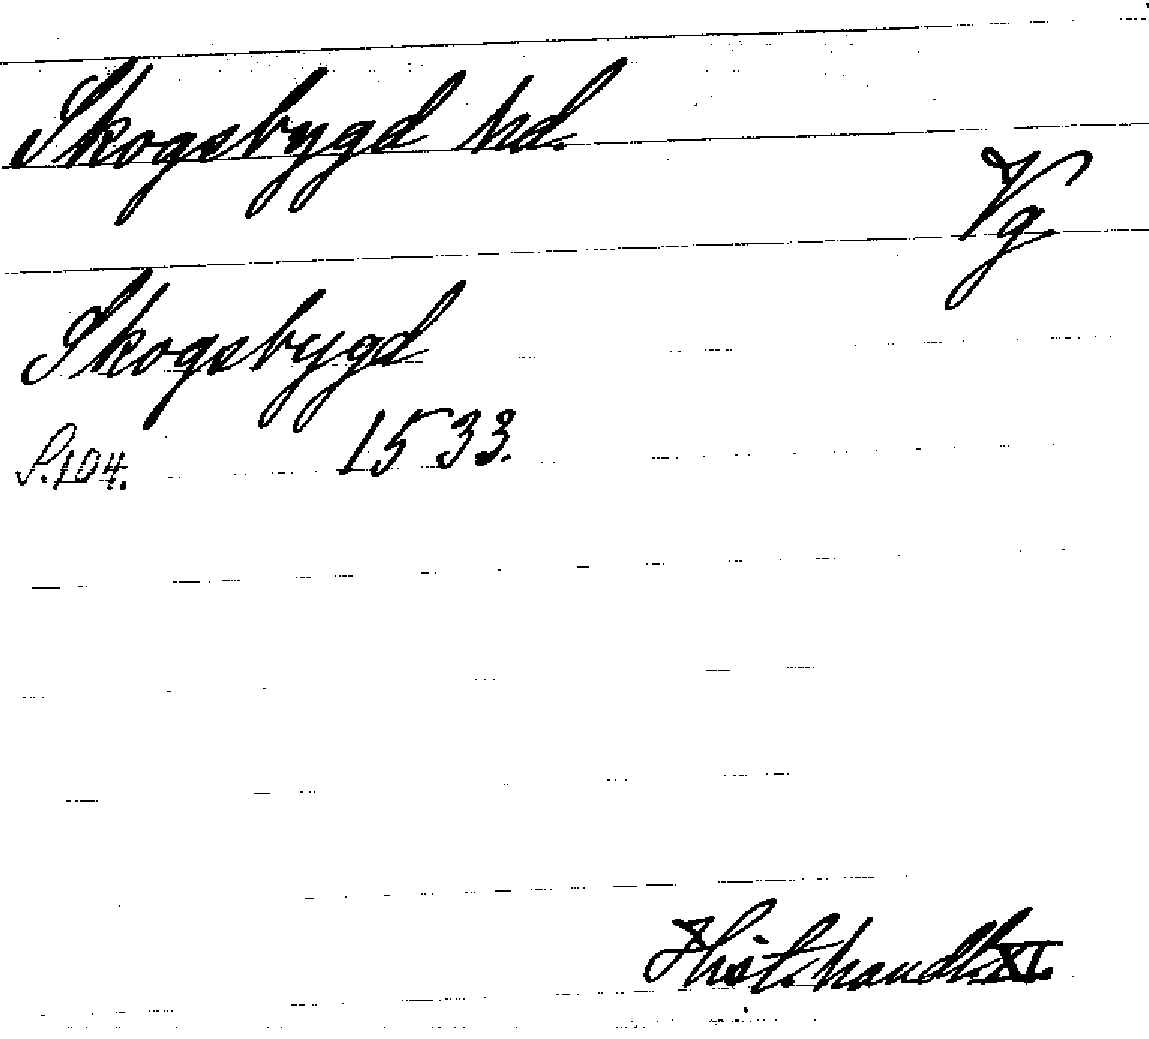 Skogsbygd hd.
Vg
Skogsbygd
S.104. 1533.
Hist. handl. XI.